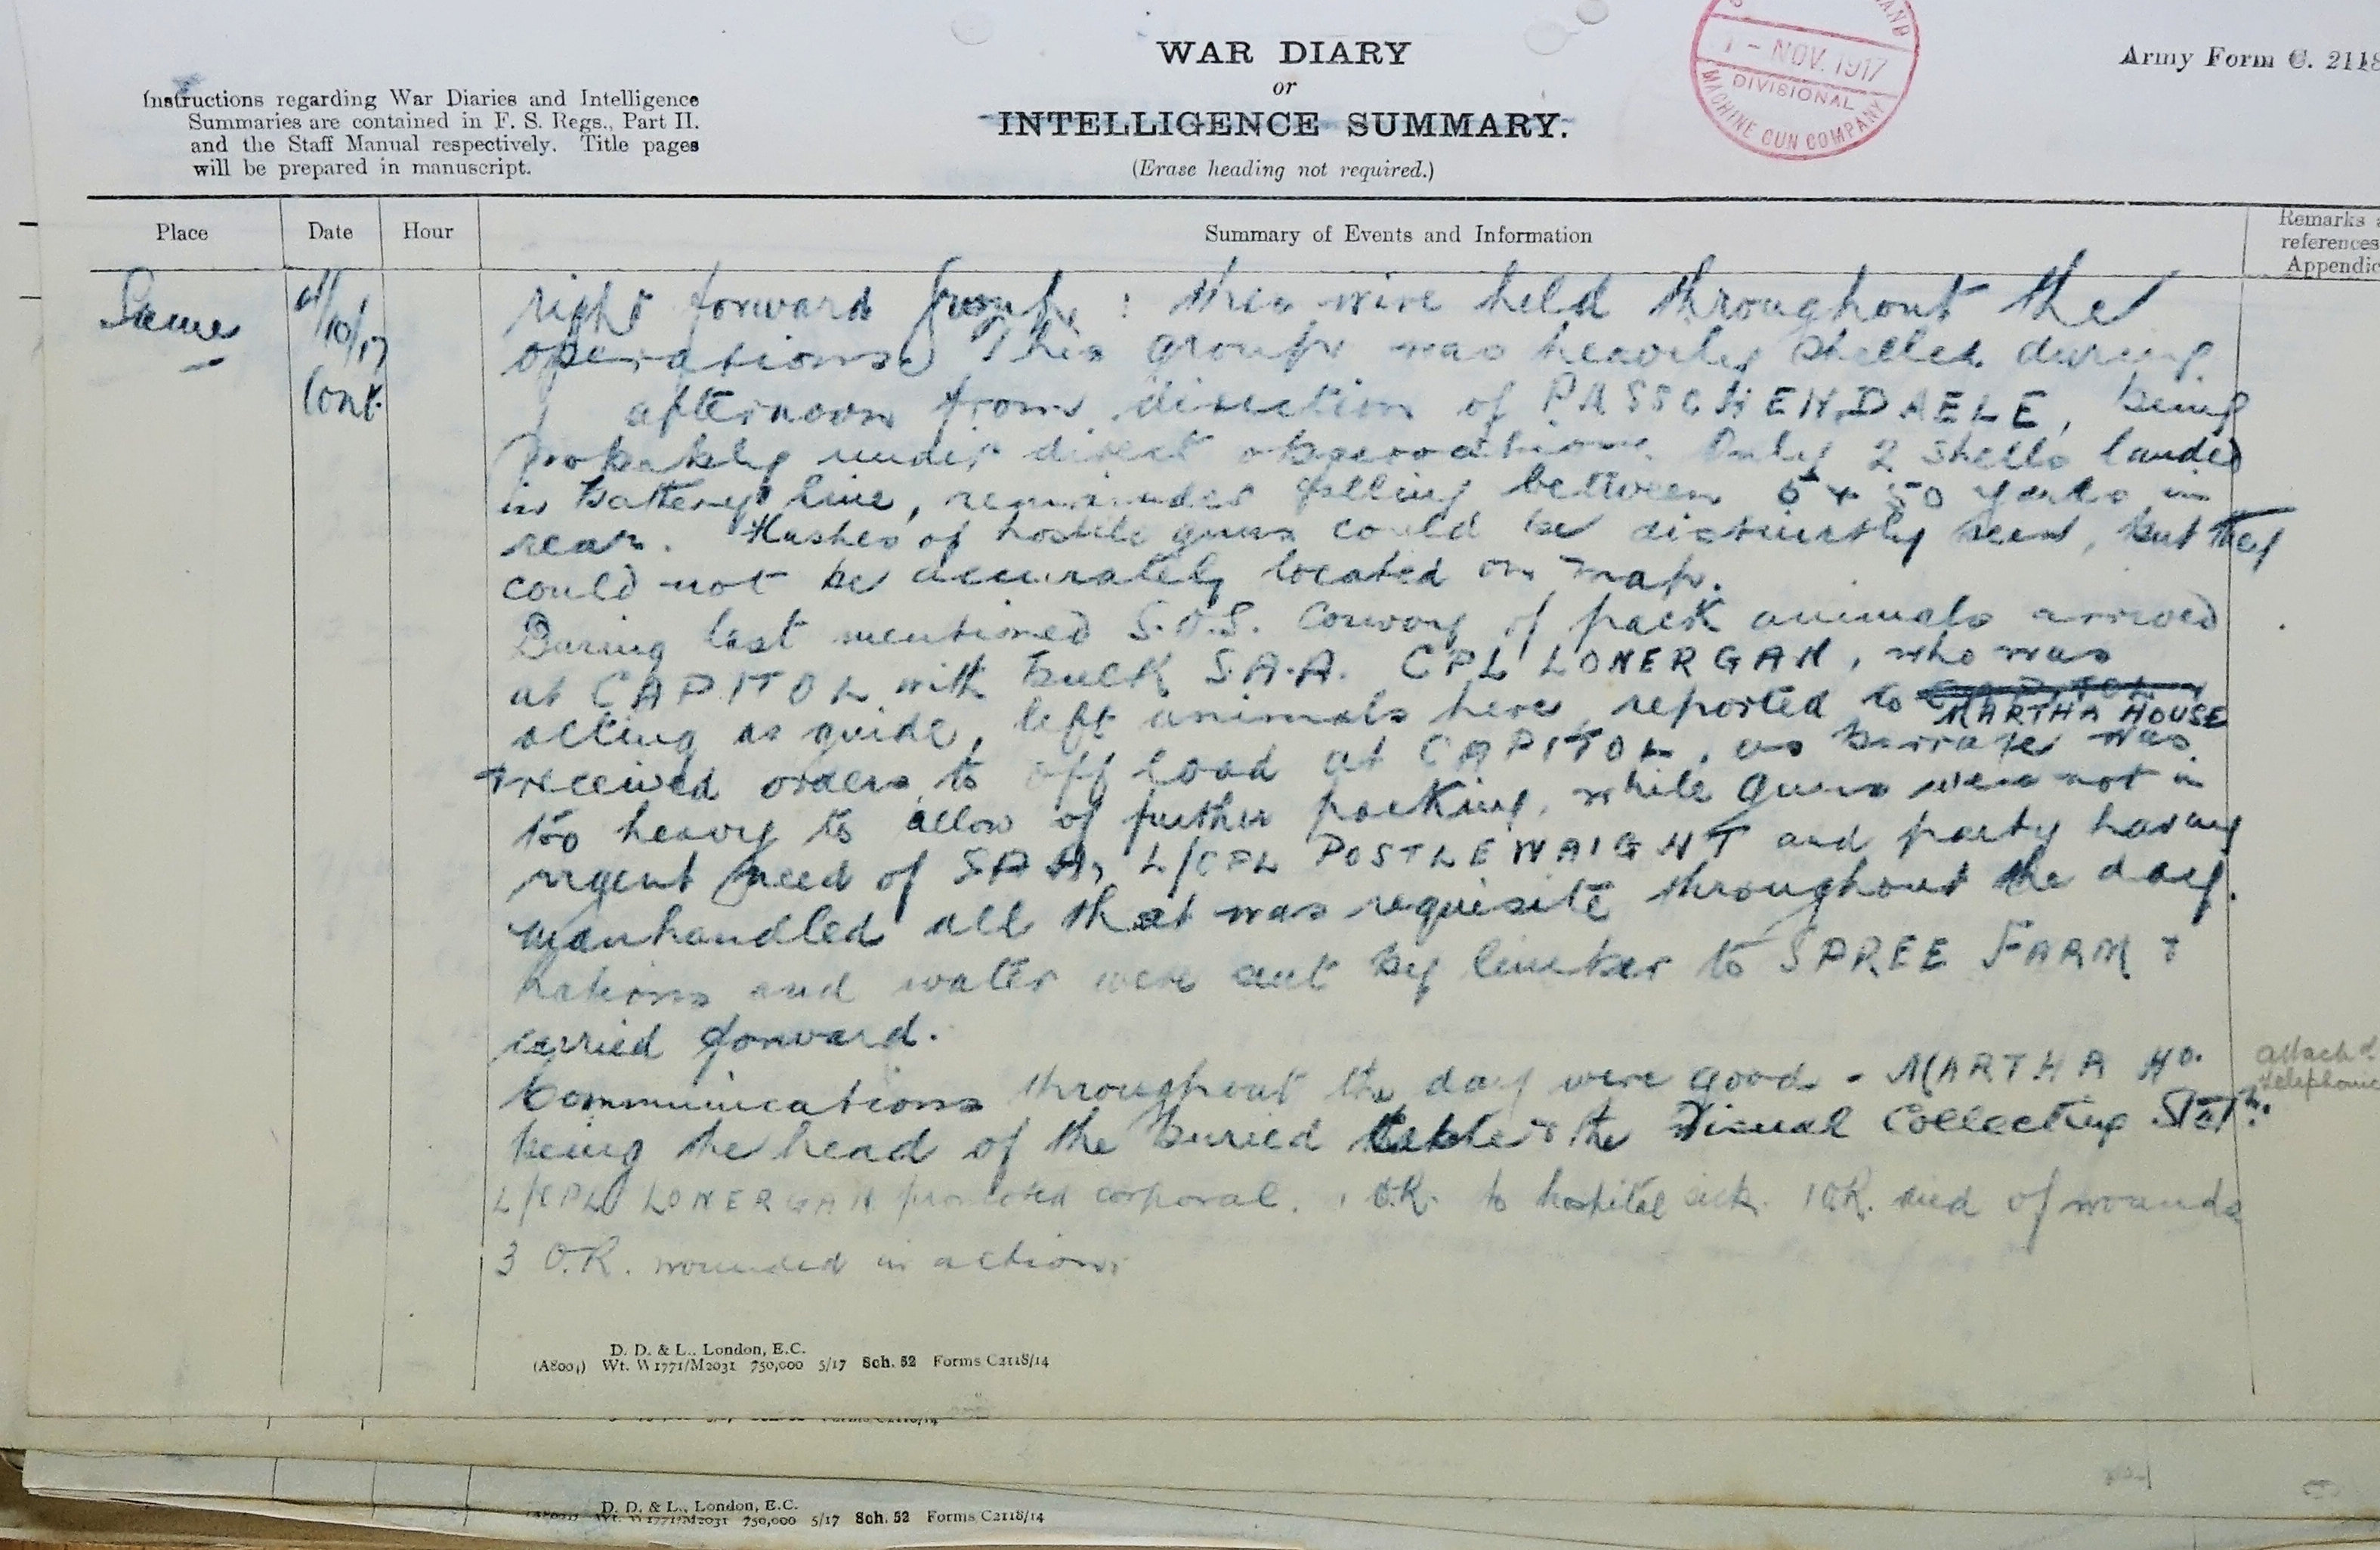 WAR DIARY
or
INTELLIGENCE SUMMARY.
(Erase heading not required.)
Army Form C. 2118
Instructions regarding War Diaries and Intelligence
Summaries are contained in F. S. Regs., Part II.
and the Staff Manual respectively. Title pages
will be prepared in manuscript.
1 - NOV. 1917
DIVISIONAL
MACHINE GUN COMPANY
Place
Date
Hour
Summary of Events and Information
Remarks
references
Appendic
Same
4/10/17
Cont
right forward group : this wire held throughout the
operations. This group was heavily shelled during
afternoon from direction of PASSCHENDAELE, being
probably under direct observation. Only 2 shells landed
in battery line, remainder falling between 5 + 50 yards in
rear. Flashes of hostile guns could be distinctly seen, but they
could not be accurately located on map.
During last mentioned S.O.S. Convoy of pack animals arrived
at CAPITOL with bulk S.A.A. CPL LONERGAN, who was
acting as guide, left animals here, reported to CAPITOL MARTHA HOUSE
+ received orders to off load at CAPITOL, as barrage was
too heavy to allow of further packing, while guns were not in
urgent need of SAA, L/CPL POSTLEWAIGHT and party having
manhandled all that was requisite throughout the day.
Rations and water were sent by limber to SPREE FARM &
carried forward.
Communications throughout the day were good - MARTHA HO.
being the head of the buried cable & the Visual Collecting Statn.
attachd
telephonic
L/CPL LONERGAN promoted corporal. 1 O.R. to hospital sick. 1 O.R. died of wounds
3 O.R. wounded in action.
D. D. & L., London, E.C.
(A8004) Wt. W1771/M2031 750,000 5/17 Sch. 52 Forms C2118/14
Forms C2118/14
D. D. & L., London, E.C.
Wt. W1771/M2031 750,000 5/17 Sch. 52 Forms C2118/14